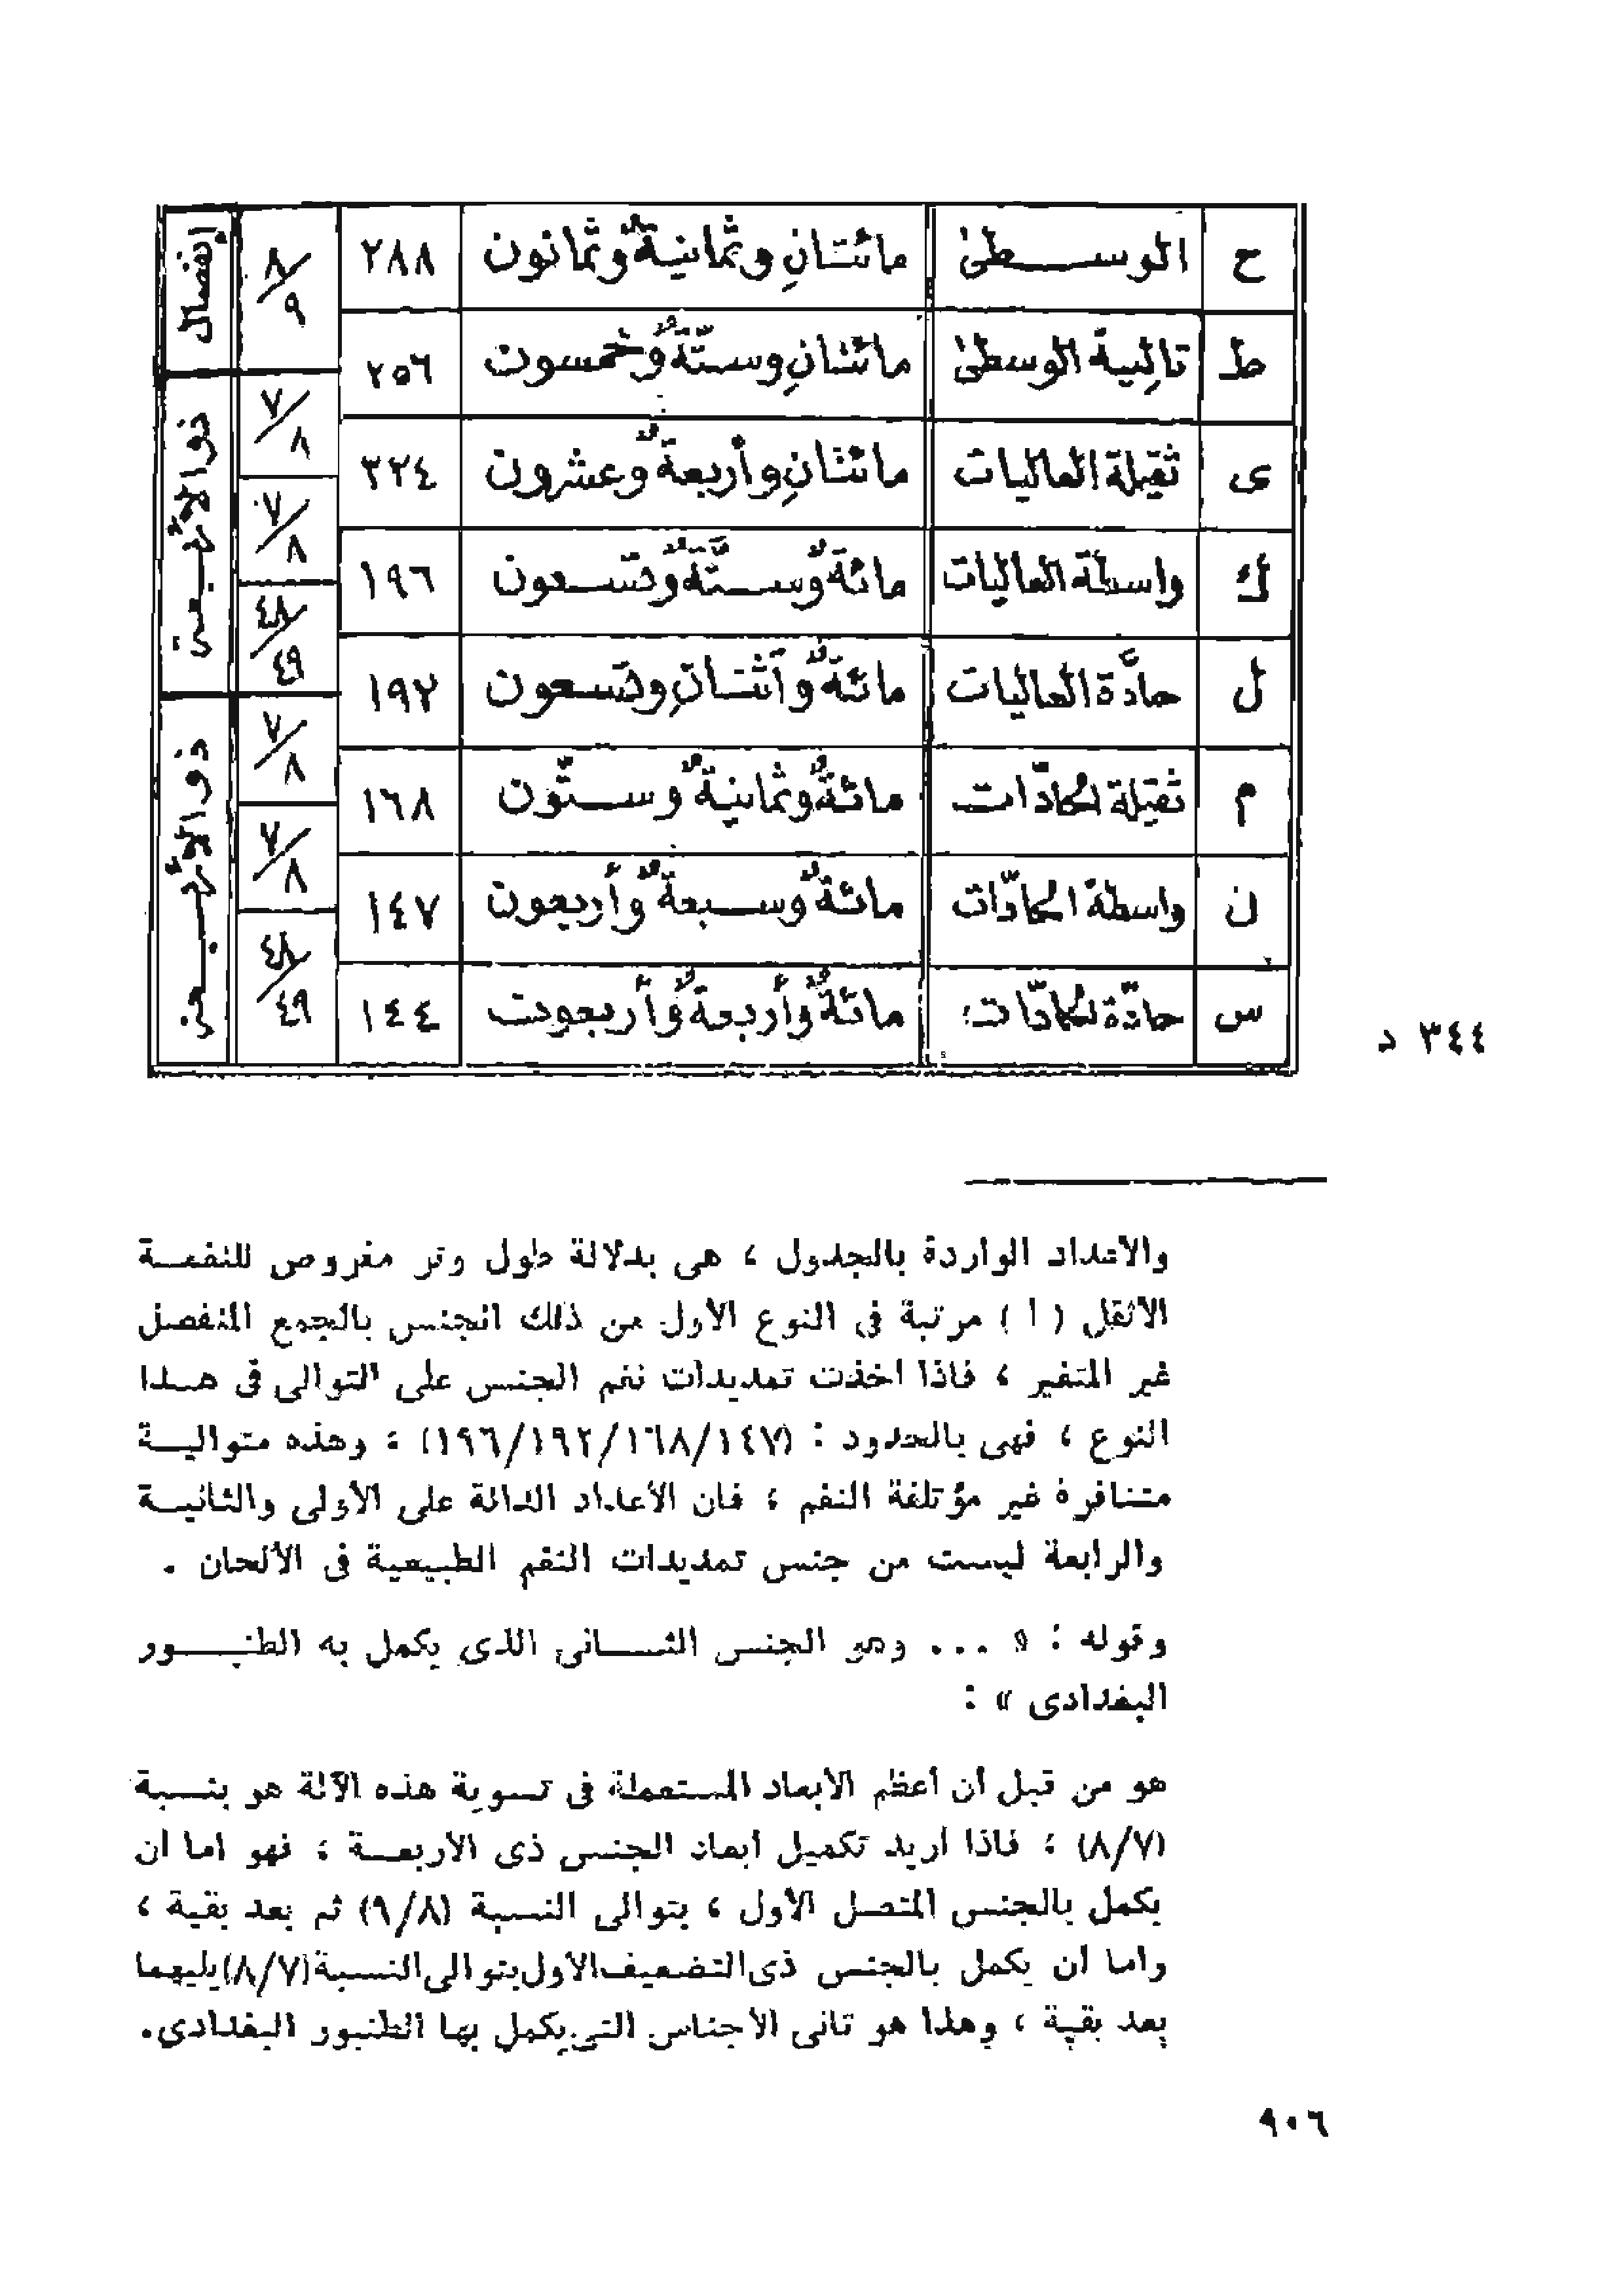 ح الوسطىٰ مائتانِ وثمانيةٌ وثمانون ٢٨٨ ٨/٩ إنفصال
ط تالِيةُ الوسطىٰ مائتانِ وستّةٌ وخمسون ٢٥٦ ٧/٨ ذو الأربعة
ى ثقيلة العاليات مائتانِ وأربعةٌ وعشرون ٢٢٤ ٧/٨
ك واسطة العاليات مائةٌ وستَّةٌ وتسعون ١٩٦ ٤٨/٤٩
ل حادَّة العاليات مائةٌ وآثنانِ وتسعون ١٩٢ ٧/٨ ذو الأربعة
م ثقيلة الحادّات مائةٌ وثمانيةٌ وستّون ١٦٨ ٧/٨
ن واسطة الحادّات مائةٌ وسبعةٌ وأربعون ١٤٧ ٤٨/٤٩
س حادّة الحادّات مائةٌ وأربعةٌ وأربعون ١٤٤
٣٤٤ د
والأعداد الواردة بالجدول ، هى بدلالة طول وتر مفروض للنغمة
الأثقل ( ا ) مرتبة فى النوع الأول من ذلك الجنس بالجمع المنفصل
غير المتغير ، فاذا أخذت تمديدات نغم الجنس على التوالى فى هذا
النوع ، فهى بالحدود : (١٤٧/١٦٨/١٩٢/١٩٦) ، وهذه متوالية
متنافرة غير مؤتلفة النغم ، فان الأعداد الدالة على الأولى والثانية
والرابعة ليست من جنس تمديدات النغم الطبيعية فى الألحان .
وقوله : « ... وهو الجنس الثانى الذى يكمل به الطنبور
البغدادى » :
هو من قبل أن أعظم الأبعاد المستعملة فى تسوية هذه الآلة هو بنسبة
(٨/٧) ، فاذا أريد تكميل أبعاد الجنس ذى الأربعة ، فهو اما أن
يكمل بالجنس المتصل الأول ، بتوالى النسبة (٩/٨) ثم بعد بقية ،
واما أن يكمل بالجنس ذى التضعيف الأول بتوالى النسبة (٨/٧) يليهما
بعد بقية ، وهذا هو ثانى الأجناس التى يكمل بها الطنبور البغدادى.
٩٠٦